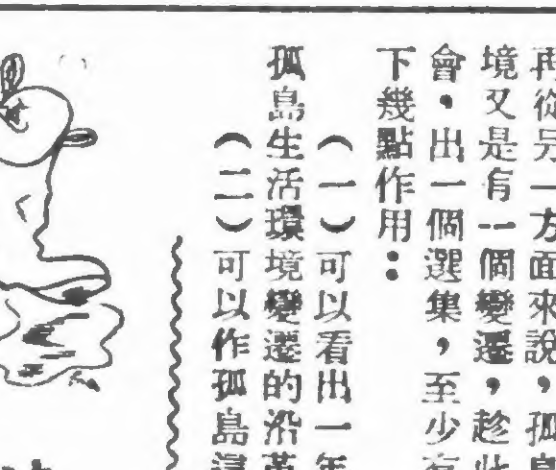 再從另一方面來說，孤島
境又是有一個變遷，趁此
會，出一個選集，至少有
下幾點作用：
（一）可以看出一年
孤島生活環境變遷的沿革
（二）可以作孤島